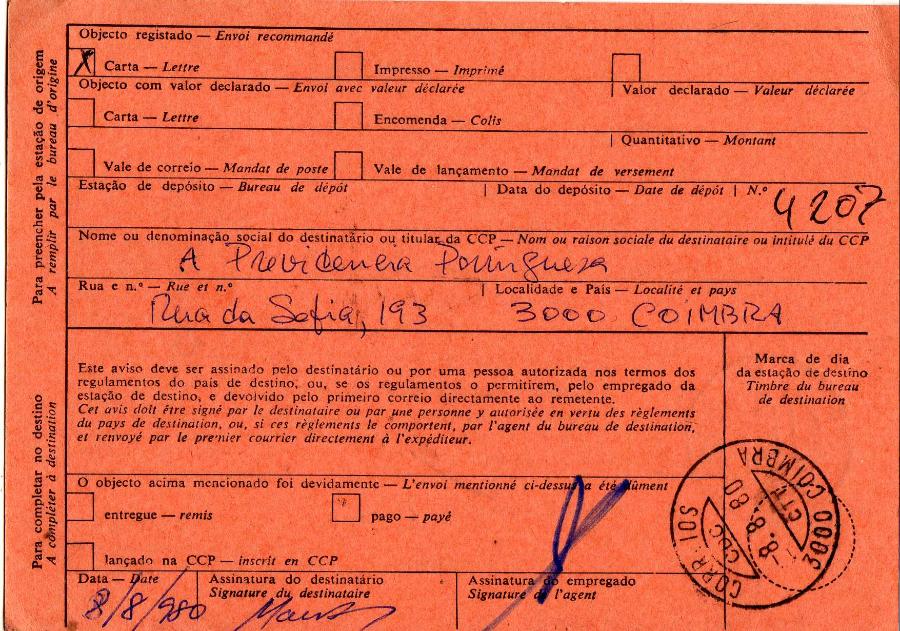 Para preencher pela estação de origem
A remplir par le bureau d'origine
Objecto registado — Envoi recommandé
X Carta — Lettre
Impresso — Imprimé
Objecto com valor declarado — Envoi avec valeur déclarée
Valor declarado — Valeur déclarée
Carta — Lettre
Encomenda — Colis
Quantitativo — Montant
Vale de correio — Mandat de poste
Vale de lançamento — Mandat de versement
Estação de depósito — Bureau de dépôt
Data do depósito — Date de dépôt
N.º 4207
Nome ou denominação social do destinatário ou titular da CCP — Nom ou raison sociale du destinataire ou intitulé du CCP
A Previdencia Portuguesa
Rua e n.º — Rue et n.º
Localidade e País — Localité et pays
Rua da Sofia, 193
3000 COIMBRA
Para completar no destino
A compléter à destination
Este aviso deve ser assinado pelo destinatário ou por uma pessoa autorizada nos termos dos
regulamentos do país de destino, ou, se os regulamentos o permitirem, pelo empregado da
estação de destino, e devolvido pelo primeiro correio directamente ao remetente.
Cet avis doit être signé par le destinataire ou par une personne y autorisée en vertu des règlements
du pays de destination, ou, si ces règlements le comportent, par l'agent du bureau de destination,
et renvoyé par le premier courrier directement à l'expéditeur.
Marca de dia
da estação de destino
Timbre du bureau
de destination
O objecto acima mencionado foi devidamente — L'envoi mentionné ci-dessus a été dûment
entregue — remis
pago — payé
lançado na CCP — inscrit en CCP
Data — Date
8/8/980
Assinatura do destinatário
Signature du destinataire
Assinatura do empregado
Signature de l'agent
3000 COIMBRA
CTT
-8.8.80
CDC